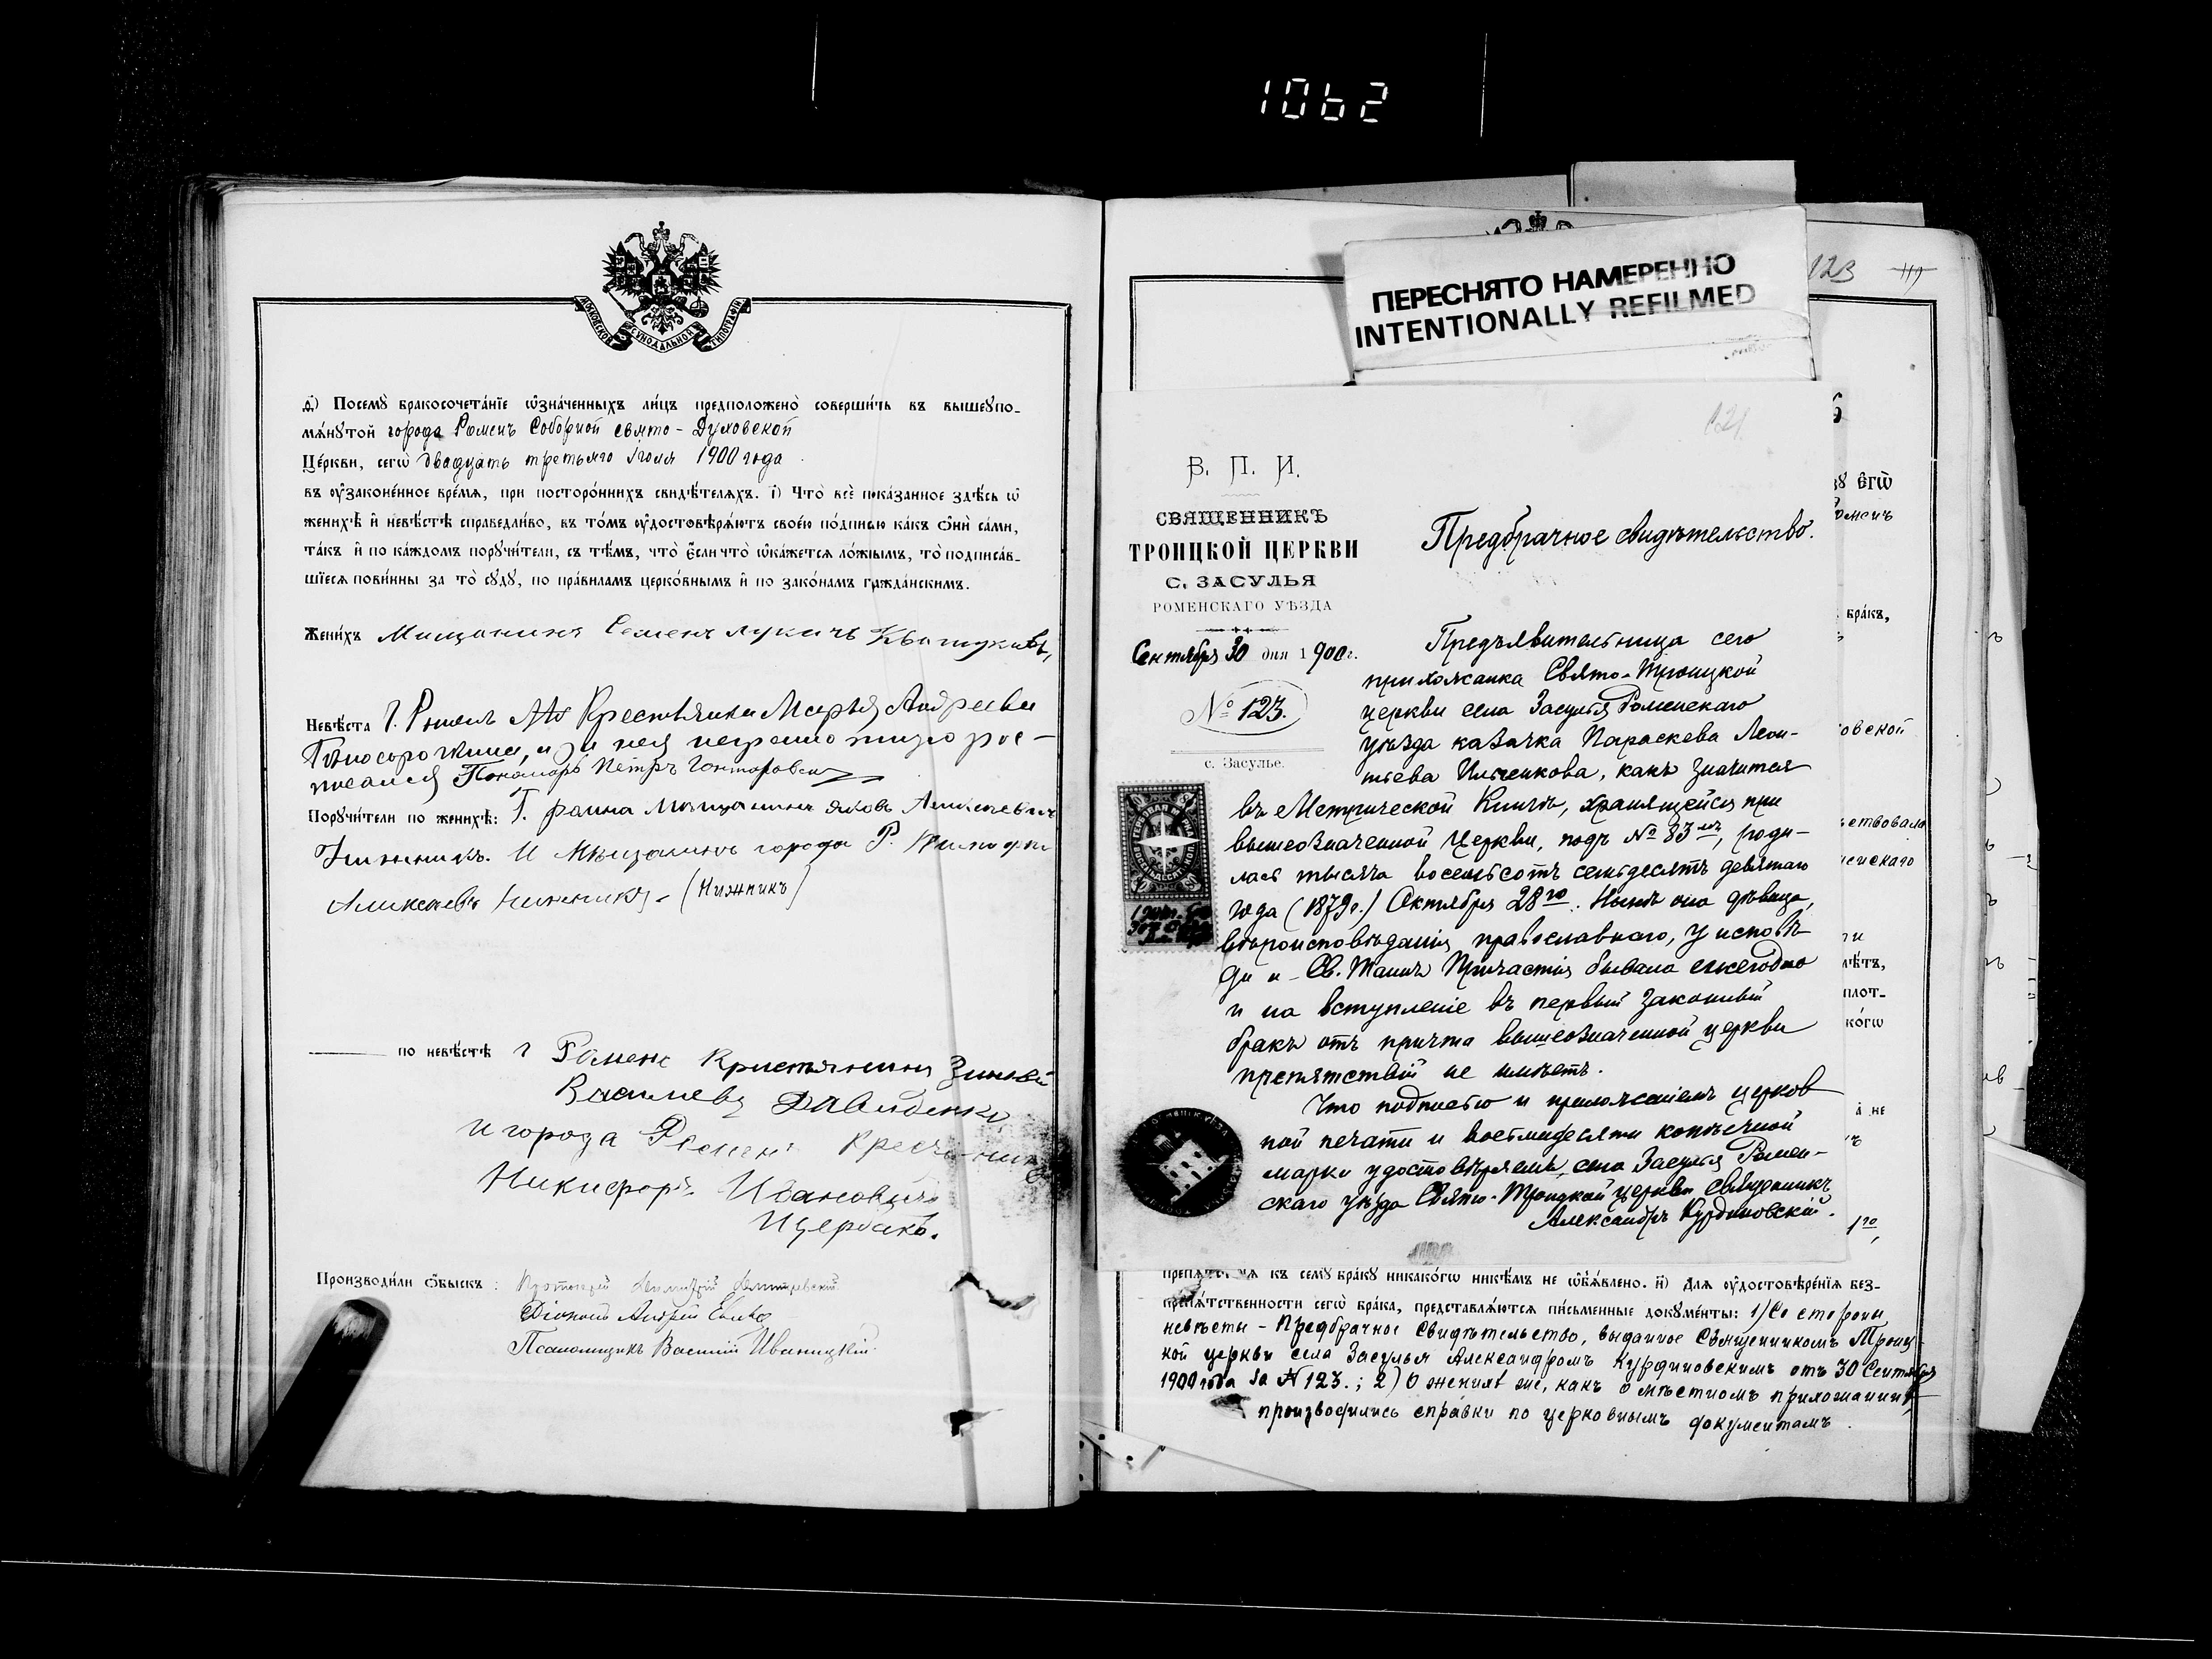 1062
МОСКОВСКОЙ СѴНОДАЛЬНОЙ ТИПОГРАФІИ
д҃) Посемꙋ̀ бракосочета́нїе ѡ҆зна́ченныхъ ли́цъ предположено̀ соверши́ть въ вышеꙋпо-
мѧ́нꙋтой города Роменъ Соборной свято-Духовской
Це́ркви, сегѡ̀ двадцать третьяго Іюля 1900 года
въ ᲂу҆законе́нное вре́мѧ, при посторо́ннихъ свидѣ́телѧхъ. і҃) Что̀ всѐ пока́занное здѣ́сь ѡ҆
женихѣ̀ и҆ невѣ́стѣ справедли́во, въ то́мъ ᲂу҆достовѣрѧ́ютъ свое́ю по́дписью ка́къ ѻ҆нѝ са́ми,
та́къ и҆ по ка́ждомъ порꙋчи́тели, съ тѣ́мъ, что̀ є҆́сли что̀ ѡ҆ка́жетсѧ ло́жнымъ, то̀ подписа́в-
шїесѧ пови́нны за то̀ сꙋдꙋ̀, по пра́виламъ церко́внымъ и҆ по зако́намъ гражда́нскимъ.
Жени́хъ Мищанинъ Семенъ Лукичъ
Невѣ́ста Г. Роменъ Крестьянка Марья Андреева
и за нея неграмотную рос-
писался Пономарь Петръ
Порꙋчи́тели по женихѣ̀: Г. Мищанинъ Яковъ Алексеевичъ
Нижникъ. И Мещанинъ города Р.
Алексеевъ Нижникъ. (Нижникъ)
по невѣ́стѣ г Роменъ Кристянинъ Зиновій
Василевъ Давиденко
и города Роменъ Крестянинъ
Никифоръ Ивановичъ
Щербакъ.
Производи́ли ѻ҆́быскъ: Протоіерей
Діаконъ Андрей
Псаломщикъ Василій Иваницкій
ПЕРЕСНЯТО НАМЕРЕННО
INTENTIONALLY REFILMED
123
121
В. П. И.
СВЯЩЕННИКЪ
ТРОИЦКОЙ ЦЕРКВИ
С. ЗАСУЛЬЯ
РОМЕНСКАГО УѢЗДА
Сентября 30 дня 1900 г.
№ 123.
с. Засулье.
Предбрачное свидѣтельство.
Предъявительница сего
прихожанка Свято-Троицкой
церкви села Засулья Роменскаго
уѣзда казачка Параскева Леон-
тьева Ильченкова, какъ значится
въ Метрической Книгѣ, хранящейся при
вышеозначенной Церкви, подъ № 83мъ, роди-
лась тысяча восемьсотъ семьдесятъ девятаго
года (1879 г.) Октября 28го. Нынѣ она дѣвица,
вѣроисповѣданія православнаго, у исповѣ-
ди и Св. Таинъ Причастія бывала ежегодно
и на вступленіе въ первый законный
бракъ отъ причта вышеозначенной церкви
препятствій не имѣетъ.
Что подписью и приложеніемъ церков
ной печати и восьмидесяти копѣечной
марки удостовѣряемъ, села Засулья Ромен-
скаго уѣзда Свято-Троицкой церкви священникъ
Александръ Курдиновскій.
є҆гѡ̀
Роменъ
бра́къ,
овской
ствовала
менскаго
лѣ́тъ,
плот-
ко́гѡ
не
1го,
препѧ́тствїѧ къ семꙋ̀ бра́кꙋ никако́гѡ никѣ́мъ не ѡ҆б̾ѧ́влено. и҃) Длѧ ᲂу҆достовѣре́нїѧ без-
препѧ́тственности сегѡ̀ бра́ка, представлѧ́ютсѧ пи́сьменные докꙋме́нты: 1) Со стороны
невѣсты - Предбрачное Свидѣтельство, выданное Священникомъ Троиц-
кой церкви села Засулья Александромъ Курдиновскимъ отъ 30 Сентября
1900 года за № 123.; 2) О женихѣ же, какъ о мѣстномъ прихожанинѣ
производились справки по церковнымъ документамъ.